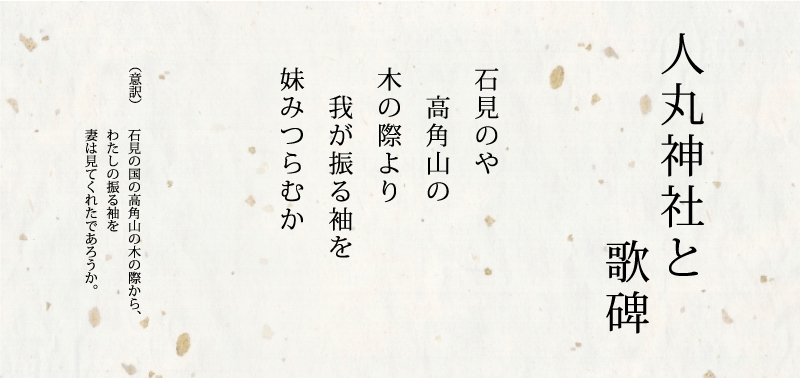 人丸神社と
歌碑
石見のや
高角山の
木の際より
我が振る袖を
妹みつらむか
（意訳）
石見の国の高角山の木の際から、
わたしの振る袖を
妻は見てくれたであろうか。